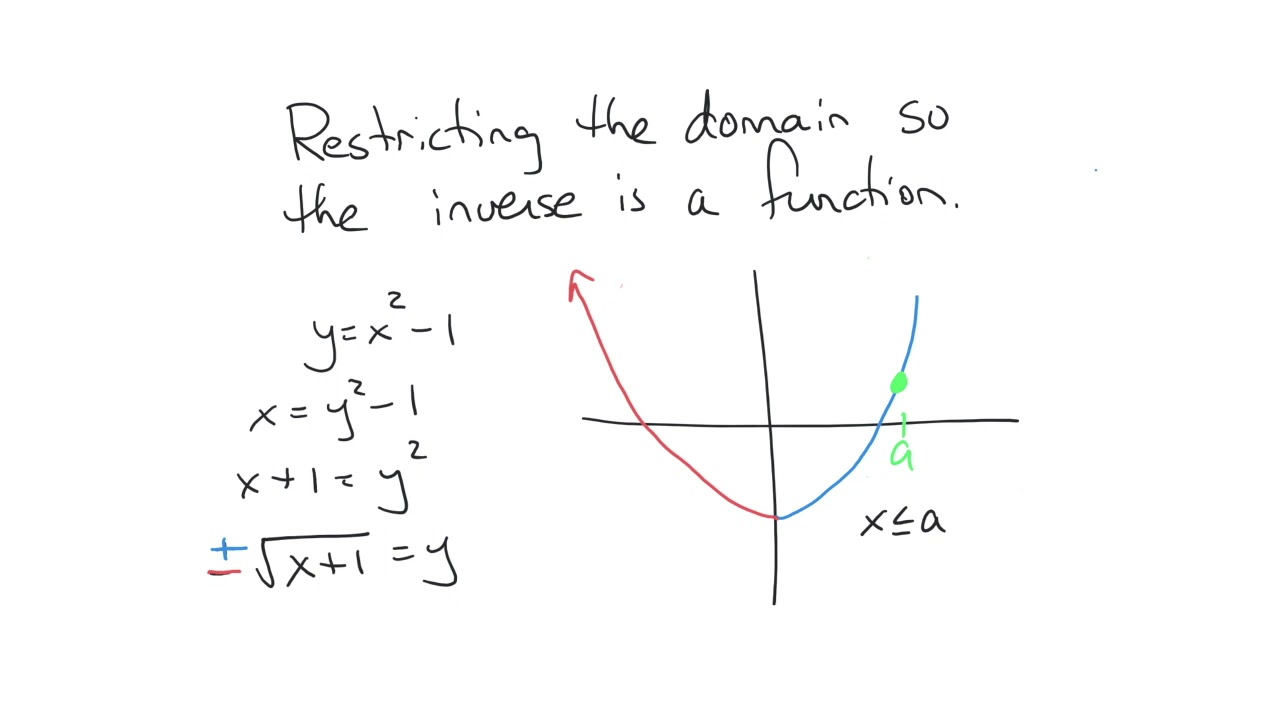 Restricting the domain so
the inverse is a function.
y=x²-1
x=y²-1
x+1=y²
±√x+1=y
a
x≤a